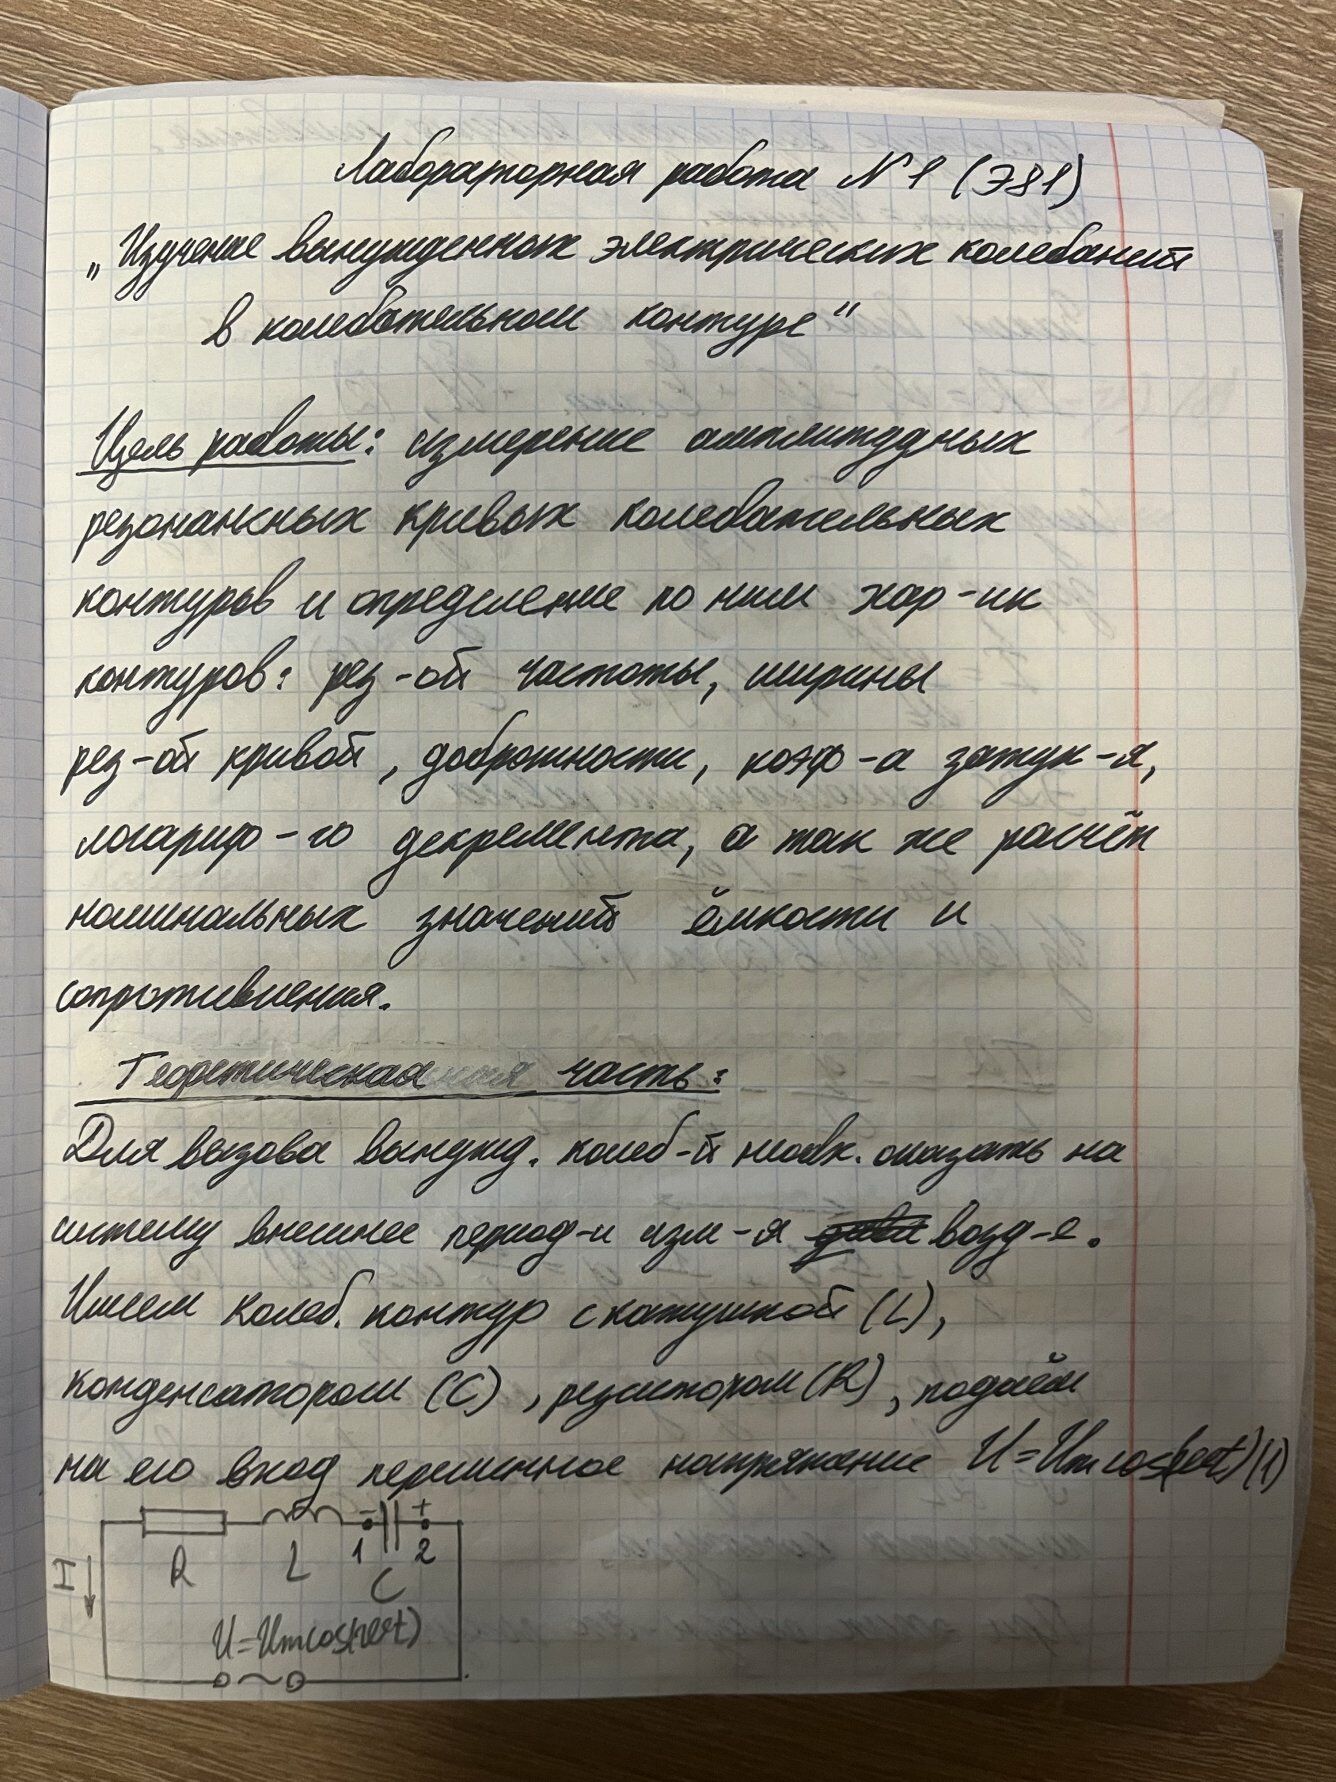 Лабораторная работа №1 (Э81)
„Изучение вынужденных электрических колебаний
в колебательном контуре“
Цель работы: измерение амплитудных
резонансных кривых колебательных
контуров и определение по ним хар-ик
контуров: рез-ой частоты, ширины
рез-ой кривой, добротности, коэф-а затух-я,
логариф-го декремента, а так же расчёт
номинальных значений ёмкости и
сопротивления.
Теоретическая часть:
Для вызова вынужд. колеб-й необх. оказать на
систему внешнее период-и изм-я возд-е.
Имеем колеб. контур с катушкой (L),
конденсатором (C), резистором (R), подаём
на его вход переменное напряжение U=Um cos(ωt) (1)
- +
R L 1 2
I C
U=Um cos(ωt)
~